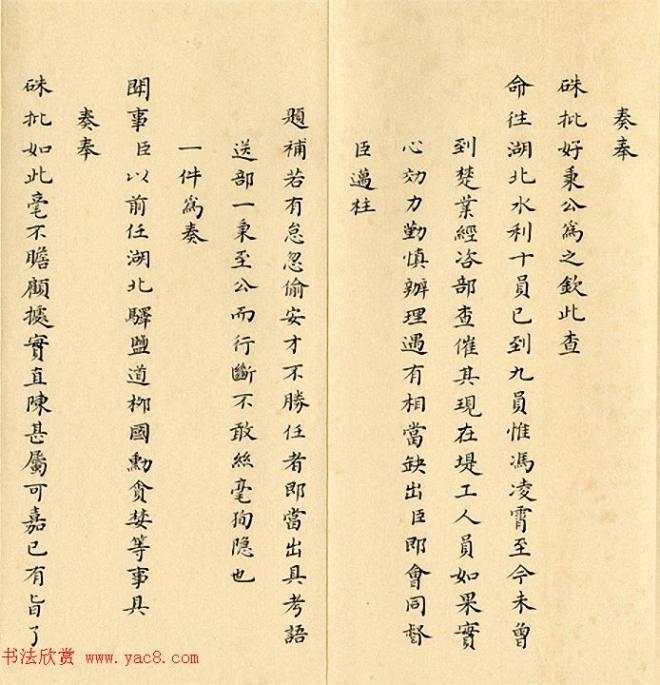 奏奉
硃批好秉公爲之欽此查
命往湖北水利十員已到九員惟馮凌霄至今未曾
到楚業經咨部查催其現在堤工人員如果實
心効力勤慎辦理遇有相當缺出臣即會同督
臣邁柱
題補若有怠忽偷安才不勝任者即當出具考語
送部一秉至公而行斷不敢絲毫狥隐也
一件爲奏
聞事臣以前任湖北驛鹽道柳國勳貪婪等事具
奏奉
硃批如此毫不瞻顧據實直陳甚屬可嘉已有旨了
书法欣赏 www.yac8.com